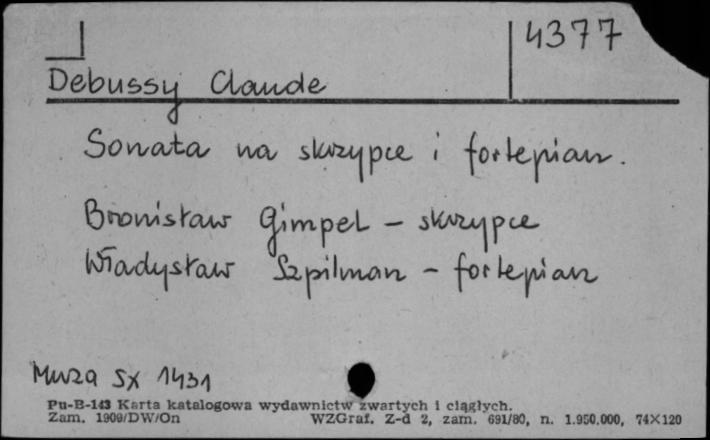 4377
Debussy Claude
Sonata na skrzypce i fortepian.
Bronisław Gimpel – skrzypce
Władysław Szpilman – fortepian
Muza SX 1431
Pu-B-143 Karta katalogowa wydawnictw zwartych i ciągłych.
Zam. 1909/DW/On WZGraf. Z-d 2, zam. 691/80, n. 1.950.000, 74×120